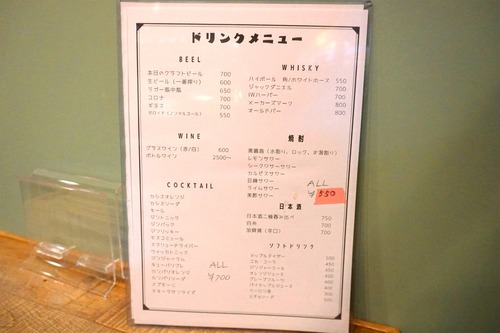 ドリンクメニュー
BEEL
本日のクラフトビール 700
生ビール（一番搾り） 600
ラガー瓶中瓶 650
コロナ 700
ギネス 700
ゼロイチ（ノンアルコール） 550
WINE
グラスワイン（赤/白） 600
ボトルワイン 2500〜
COCKTAIL
カシスオレンジ
カシスソーダ
キール
ジントニック
ジンバック
ジンリッキー
モスコミュール
スクリュードライバー
ウォッカトニック
ジンジャーラム
キューバリブレ
カンパリオレンジ
カンパリソーダ
メアモーニ
テキーラサンライズ
ALL
¥700
WHISKY
ハイボール 角/ホワイトホース 550
ジャックダニエル 700
IWハーパー 700
メーカーズマーク 800
オールドパー 800
焼酎
黒霧島（水割り、ロック、お湯割り）
レモンサワー
シークワーサーサワー
カルピスサワー
巨峰サワー
ライムサワー
美酢サワー
ALL
¥550
日本酒
日本酒二種呑み比べ 750
500
700
ソフトドリンク
アップルタイザー 500
コカ・コーラ 450
ジンジャーエール 450
オレンジジュース 450
グレープフルーツ 450
パイナップルジュース 450
ウーロン茶 300
300